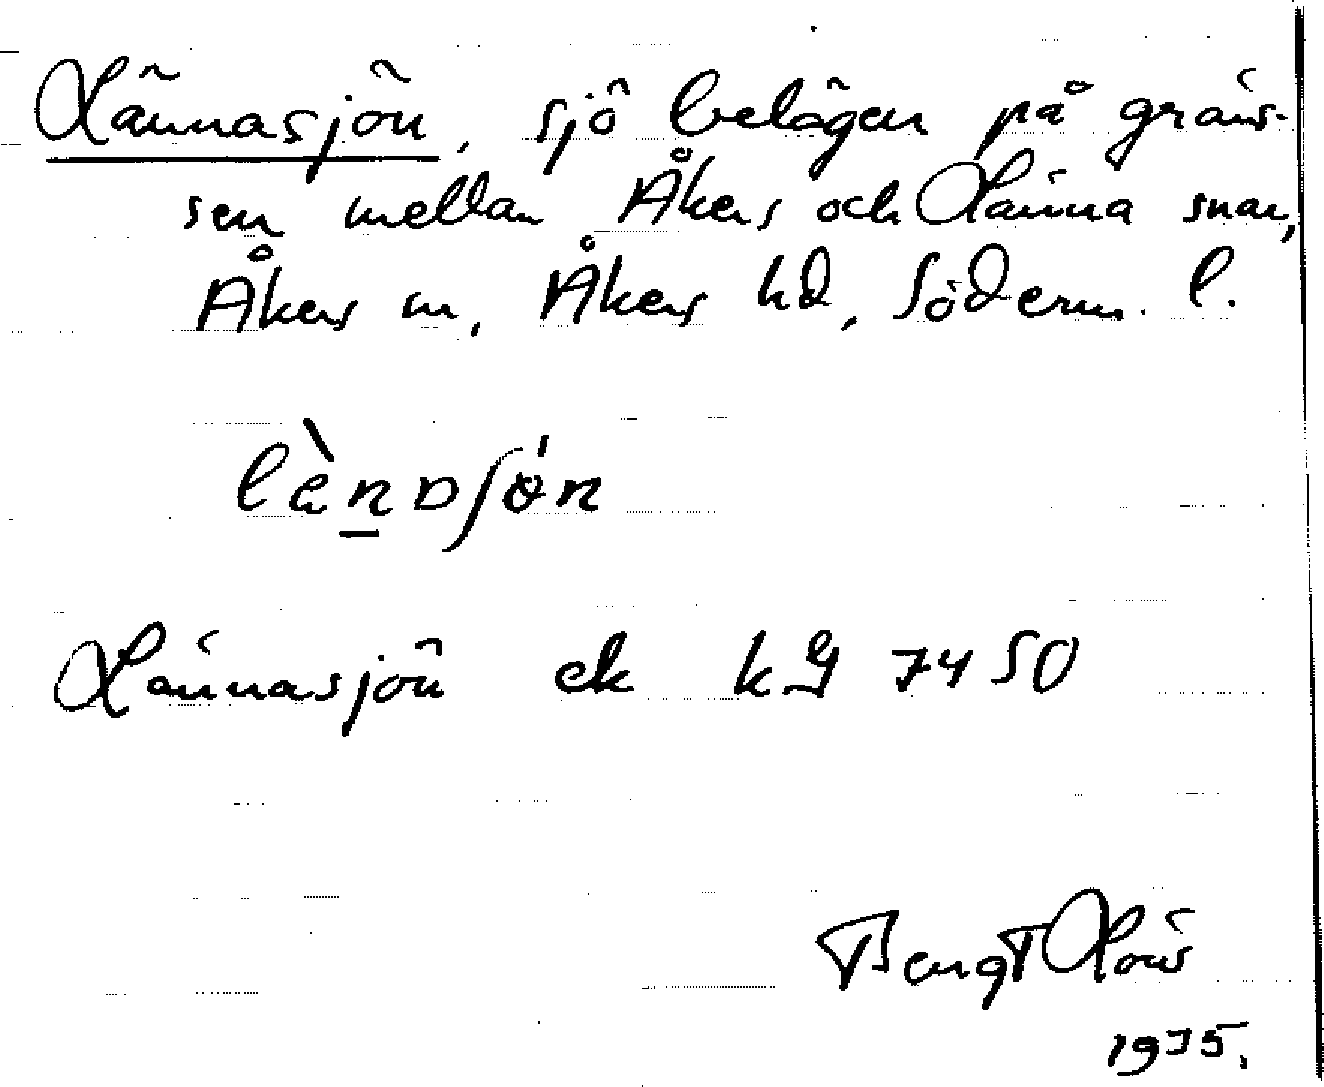 Lännasjön, sjö belägen på grän-
sen mellan Åkers och Länna snar,
Åkers sn, Åkers hd, Söderm. l.
Lännasjön ek kg 7450
Bengt
1935.